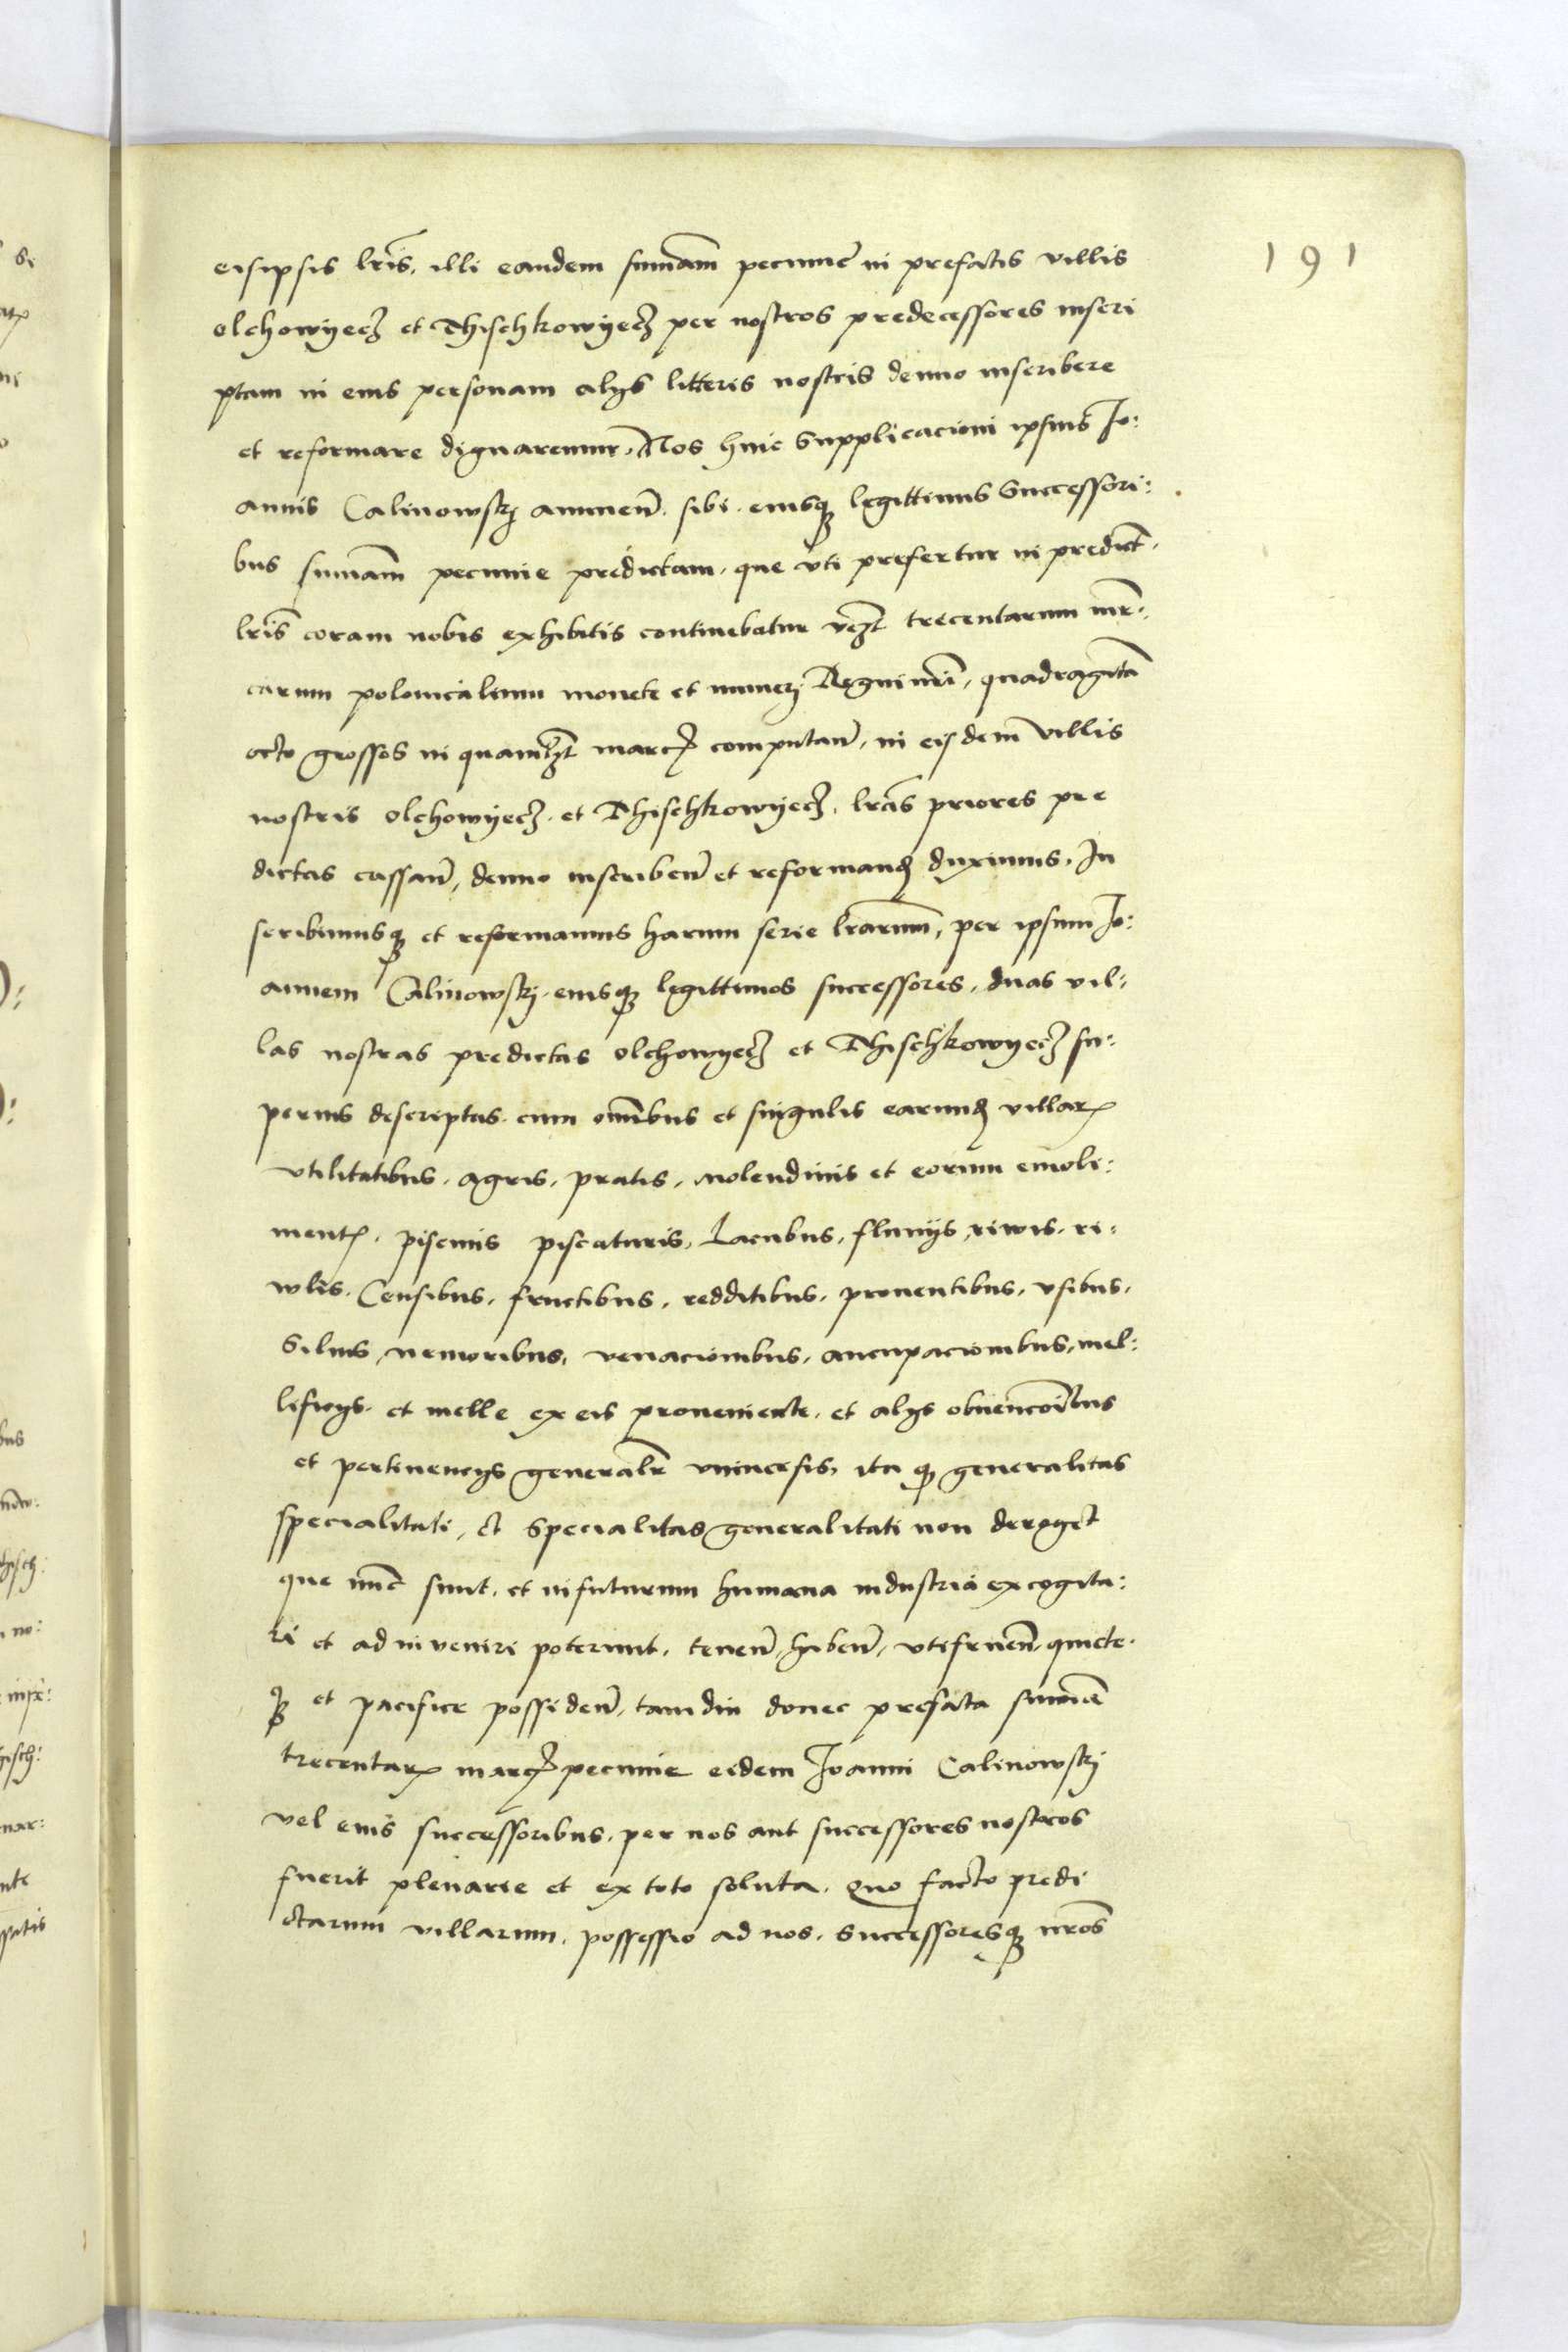 191
eisipsis lr̃is, illi eandem sum̃am pecunie in prefatis villis
olchowyecz et Thischkowyecz per nostros predecessores inscri
ptam in eius personam alys litteris nostris denuo inscribere
et reformare dignaremur. Nos huic Supplicacioni ipsius Jo:
annis Calinowskj annuen̄. sibi. eiusqꝫ legittimis Successori:
bus sum̃am pecunie predictam. que vti prefertur in predict.
lr̃is coram nobis exhibitis continebatur vꝫt trecentarum mr̃:
carum polonicalium monete et numerj Regni nr̃i, quadraginta
octo grossos in quamlꝫt marcꝝ computan̄, in eisdem villis
nostris olchowyecz. et Thischkowyecz. lr̃as priores pre
dictas cassan̄, denuo inscriben̄ et reformand̄ duximus. In
scribimusqꝫ et reformamus harum serie lr̃arum̄, per ipsum Jo:
annem Calinowskj. eiusqꝫ legittimos successores, duas vil:
las nostras predictas olchowyecz et Thischkowyecz su:
perius descriptas. cum om̃ibus et singulis earund̄ villarꝝ
vtilitatibus. agris. pratis. molendinis et eorum emoli:
mentꝭ. piscinis piscaturis, Lacubus, fluuijs, riwis. ri:
wlis. Censibus. fructibus. redditibus. prouentibus. vsibus.
Siluis, nemoribus, venacionibus. aucupacionibus, mel:
lificys. et melle ex eis proueniente. et alys obuenc̃oibus
et pertinencys generalr̄ vniuersis, ita qꝫ generalitas
specialitati, et Specialitas generalitati non deroget
que nunc sunt. et in futurum humana industria excogita:
ri et adinveniri poterunt. tenen̄, haben̄, vtifruen̄. quiete.
qꝫ et pacifice possiden̄, tamdiu donec prefata sum̃a
trecentarꝝ marcꝝ pecunie eidem Joanni Calinowskj
vel eius successoribus. per nos aut successores nostros
fuerit plenarie et ex toto soluta. quo facto predi
ctarum villarum. possessio ad nos. Successoresqꝫ nr̃os